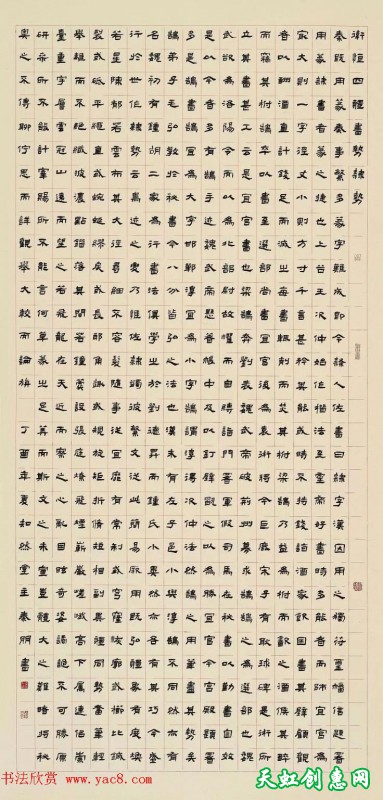 衛恒四體書勢隸勢
秦既用篆秦事繁多篆字難成即令隸人佐書曰隸字漢因用之獨符璽幡信題署
用篆隸書者篆之捷也上谷王次仲始作楷法至靈帝好書時多能者而師宜官為
家大則一字徑丈小則方寸千言甚矜其能或時不持錢詣酒家飲因書其壁顧觀
者以酬酒直計錢足而滅之每書輒削而焚其柎梁鵠乃益為柎而飲之酒候其醉
而竊其柎鵠卒以書至選部尚書宜官後為袁術將今巨鹿宋子有耿球碑是術所
立其書甚工云是宜官也梁鵠奔劉表魏武帝破荊州募求鵠鵠之為選部也魏
武欲為洛陽令而以為北部尉故懼而自縛詣門署軍假司馬在秘書以勤書自效
是以今者多有鵠手跡魏武帝懸著帳中及以釘壁玩之以為勝宜官今宮殿題署
多是鵠書鵠宜為大字邯鄲淳宜為小字鵠謂淳得次仲法然鵠之用筆盡其勢矣
鵠弟子毛弘教於秘書今八分皆弘之法也漢末有左子邑小與淳鵠不同然亦有
名魏初有鍾胡二家為行書法俱學之於劉德昇而鍾氏小異然亦各有其巧今大
行於世作隸勢曰鳥跡之變乃惟佐隸蠲彼繁文從此簡易厥用既弘體象有度煥
若星陳鬱若雲布其大徑尋細不容髮隨事從宜靡有常制或穹窿恢廓或櫛比鍼
裂或砥平繩直或蜿蜒膠戾或長邪角趣或規旋矩折修短相副異體同勢奮筆輕
舉離而不絕纖波濃點錯落其間若鍾簴設張庭燎飛煙嶄巖嵯峨高下屬連似崇
臺重宇層雲冠山遠而望之若飛龍在天近而察之心亂目眩奇姿譎詭不可勝原
研桑所不能計宰賜所不能言何草篆之足算而斯文之未宣豈體大之難睹將秘
奧之不傳聊佇思而詳觀舉大較而論旃 丁酉年夏知然堂主秦朋書
书法欣赏 www.yac8.com
天虹创意网